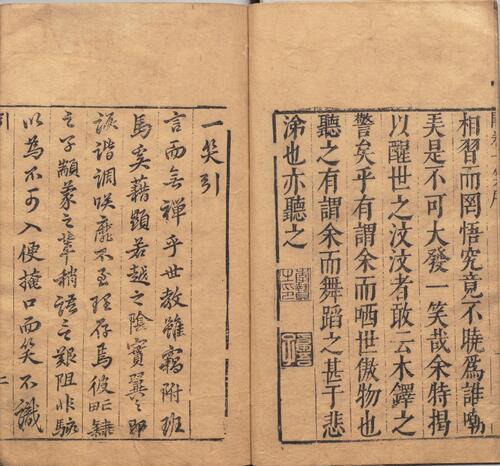 相習而罔悟究竟不曉為誰嘲
笑是不可大發一笑哉余特揭
以醒世之汶汶者敢云木鐸之
警矣乎有謂余而哂世傲物也
聽之有謂余而舞蹈之甚于悲
涕也亦聽之
一笑引
言而無禪乎世教雖竊附班
馬奚藉顕若越之陰實翼之即
詼諧調咲靡不至理存焉彼甿隸
之子顓蒙之輩稍語之艱阻非驗
以為不可入便掩口而笑不識